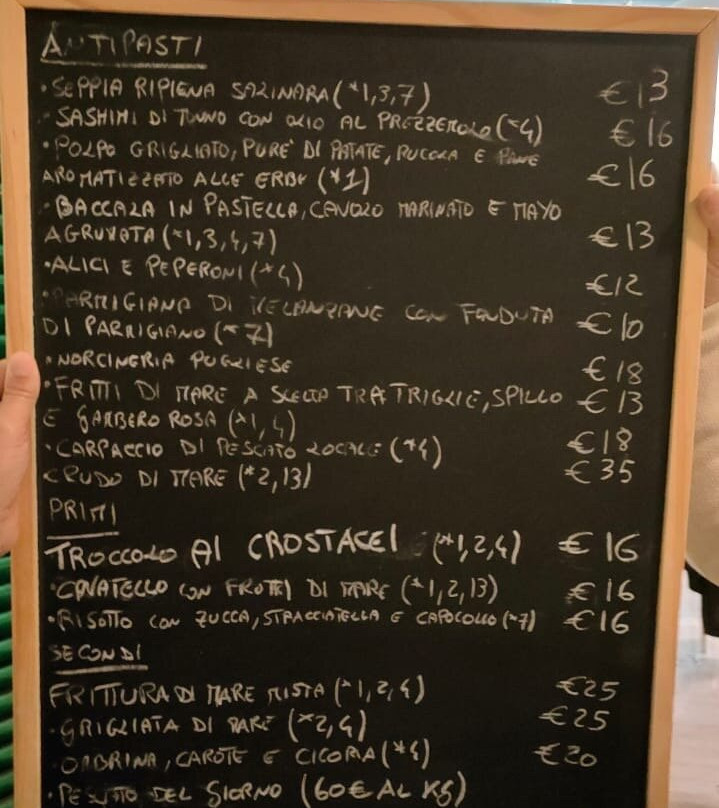 ANTIPASTI
• SEPPIA RIPIENA SALINARA (*1,3,7) €13
- SASHIMI DI TONNO CON OLIO AL PREZZEMOLO (*4) €16
• POLPO GRIGLIATO, PURE' DI PATATE, RUCOLA E PANE
AROMATIZZATO ALLE ERBE (*1) €16
- BACCALA IN PASTELLA, CAVOLO MARINATO E MAYO
AGRUMATA (*1,3,4,7) €13
• ALICI E PEPERONI (*4) €12
• PARMIGIANA DI MELANZANE CON FONDUTA
DI PARMIGIANO (*7) €10
• NORCINERIA PUGLIESE €18
• FRITTI DI MARE A SCELTA TRA TRIGLIE, SPILLO €13
E GAMBERO ROSA (*1,4)
• CARPACCIO DI PESCATO LOCALE (*4) €18
CRUDO DI MARE (*2,13) €35
PRIMI
TROCCOLO AI CROSTACEI (*1,2,4) €16
• CAVATELLO CON FRUTTI DI MARE (*1,2,13) €16
• RISOTTO CON ZUCCA, STRACCIATELLA E CAPOCOLLO (*7) €16
SECONDI
FRITTURA DI MARE MISTA (*1,2,4) €25
• GRIGLIATA DI MARE (*2,4) €25
• OMBRINA, CAROTE E CICORIA (*4) €20
• PESCATO DEL GIORNO (60€ AL KG)